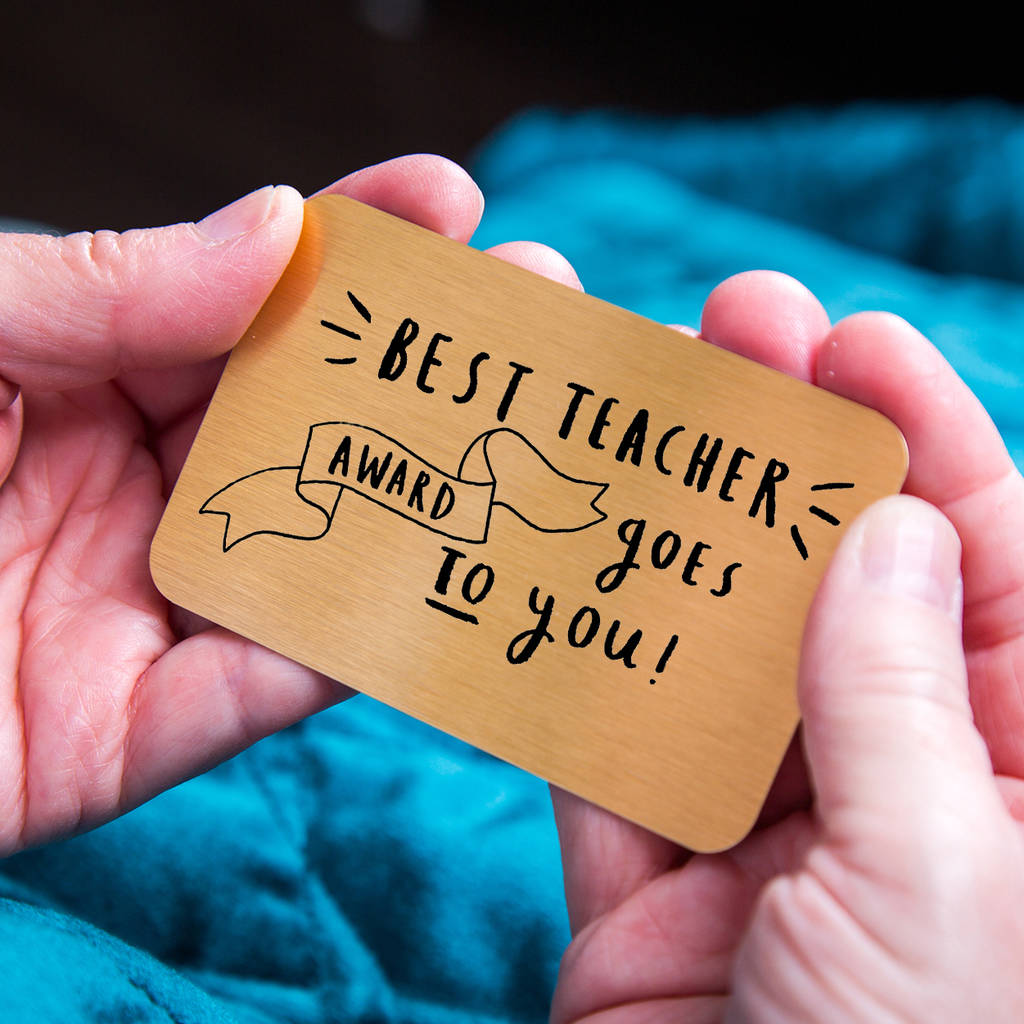 BEST TEACHER
AWARD goes
TO you!